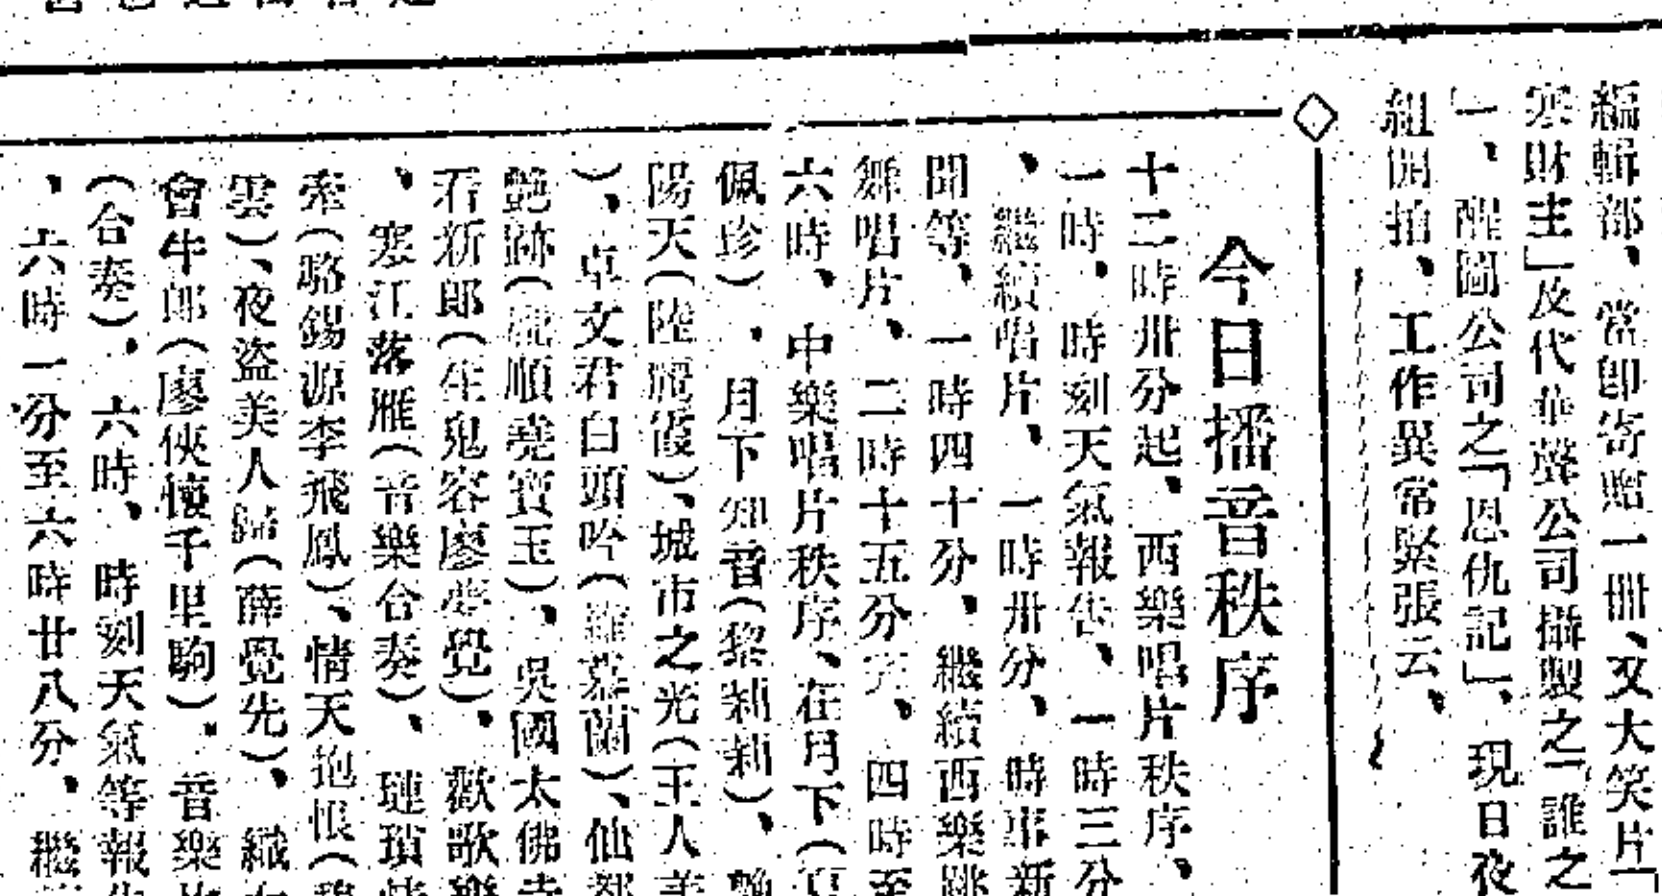 編輯部、常卽寄贈一冊、又大笑片「
寒財主」及代華聲公司攝製之「誰之
」、醒圖公司之「恩仇記」、現日夜
組開拍、工作異常緊張云、
今日播音秩序
十二時卅分起、西樂唱片秩序、
一時、時刻天氣報告、一時三分
、繼續唱片、一時卅分、時事新
聞等、一時四十分、繼續西樂跳
舞唱片、二時十五分完、四時至
六時、中樂唱片秩序、在月下(
佩珍)、月下知音(黎莉莉)、
陽天(陸麗霞)、城市之光(王人美
)、卓文君白頭吟(羅慕蘭)、仙都
艷跡(龐順堯寶玉)、吳國太佛寺
看新郎(生鬼容廖夢覺)、歡歌樂
、寒江落雁(音樂合奏)、璉瑣
牽(駱錫源李飛鳳)、情天抱恨(
雲)、夜盜美人歸(薛覺先)、織女
會牛郎(廖俠懷千里駒)、音樂
(合奏)、六時、時刻天氣等報告
、六時一分至六時廿八分、繼